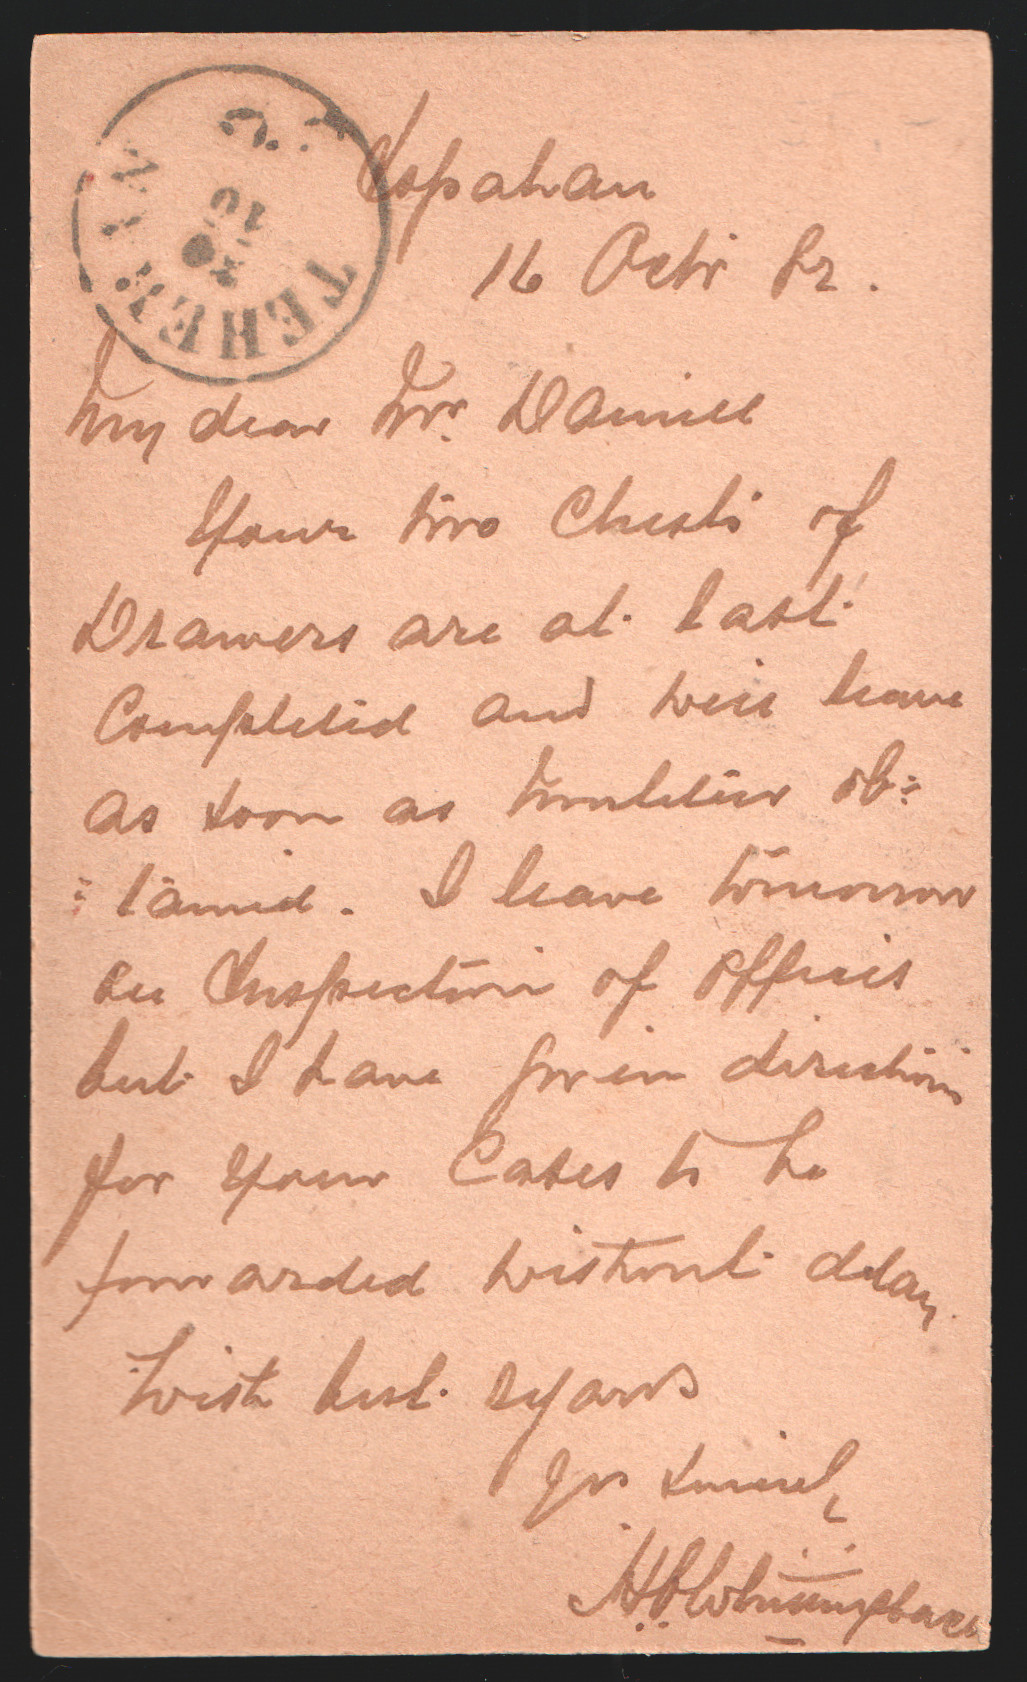 TEHERAN
10
Ispahan
16 Octr 82.
My dear Mr. Daniel
Your two Chests of
Drawers are at last
Completed and will leave
as soon as muleteer ob=
=tained. I leave tomorrow
on Inspection of offices
but I have given directions
for your Cases to be
forwarded without delay.
With best regards
Yrs sincerely